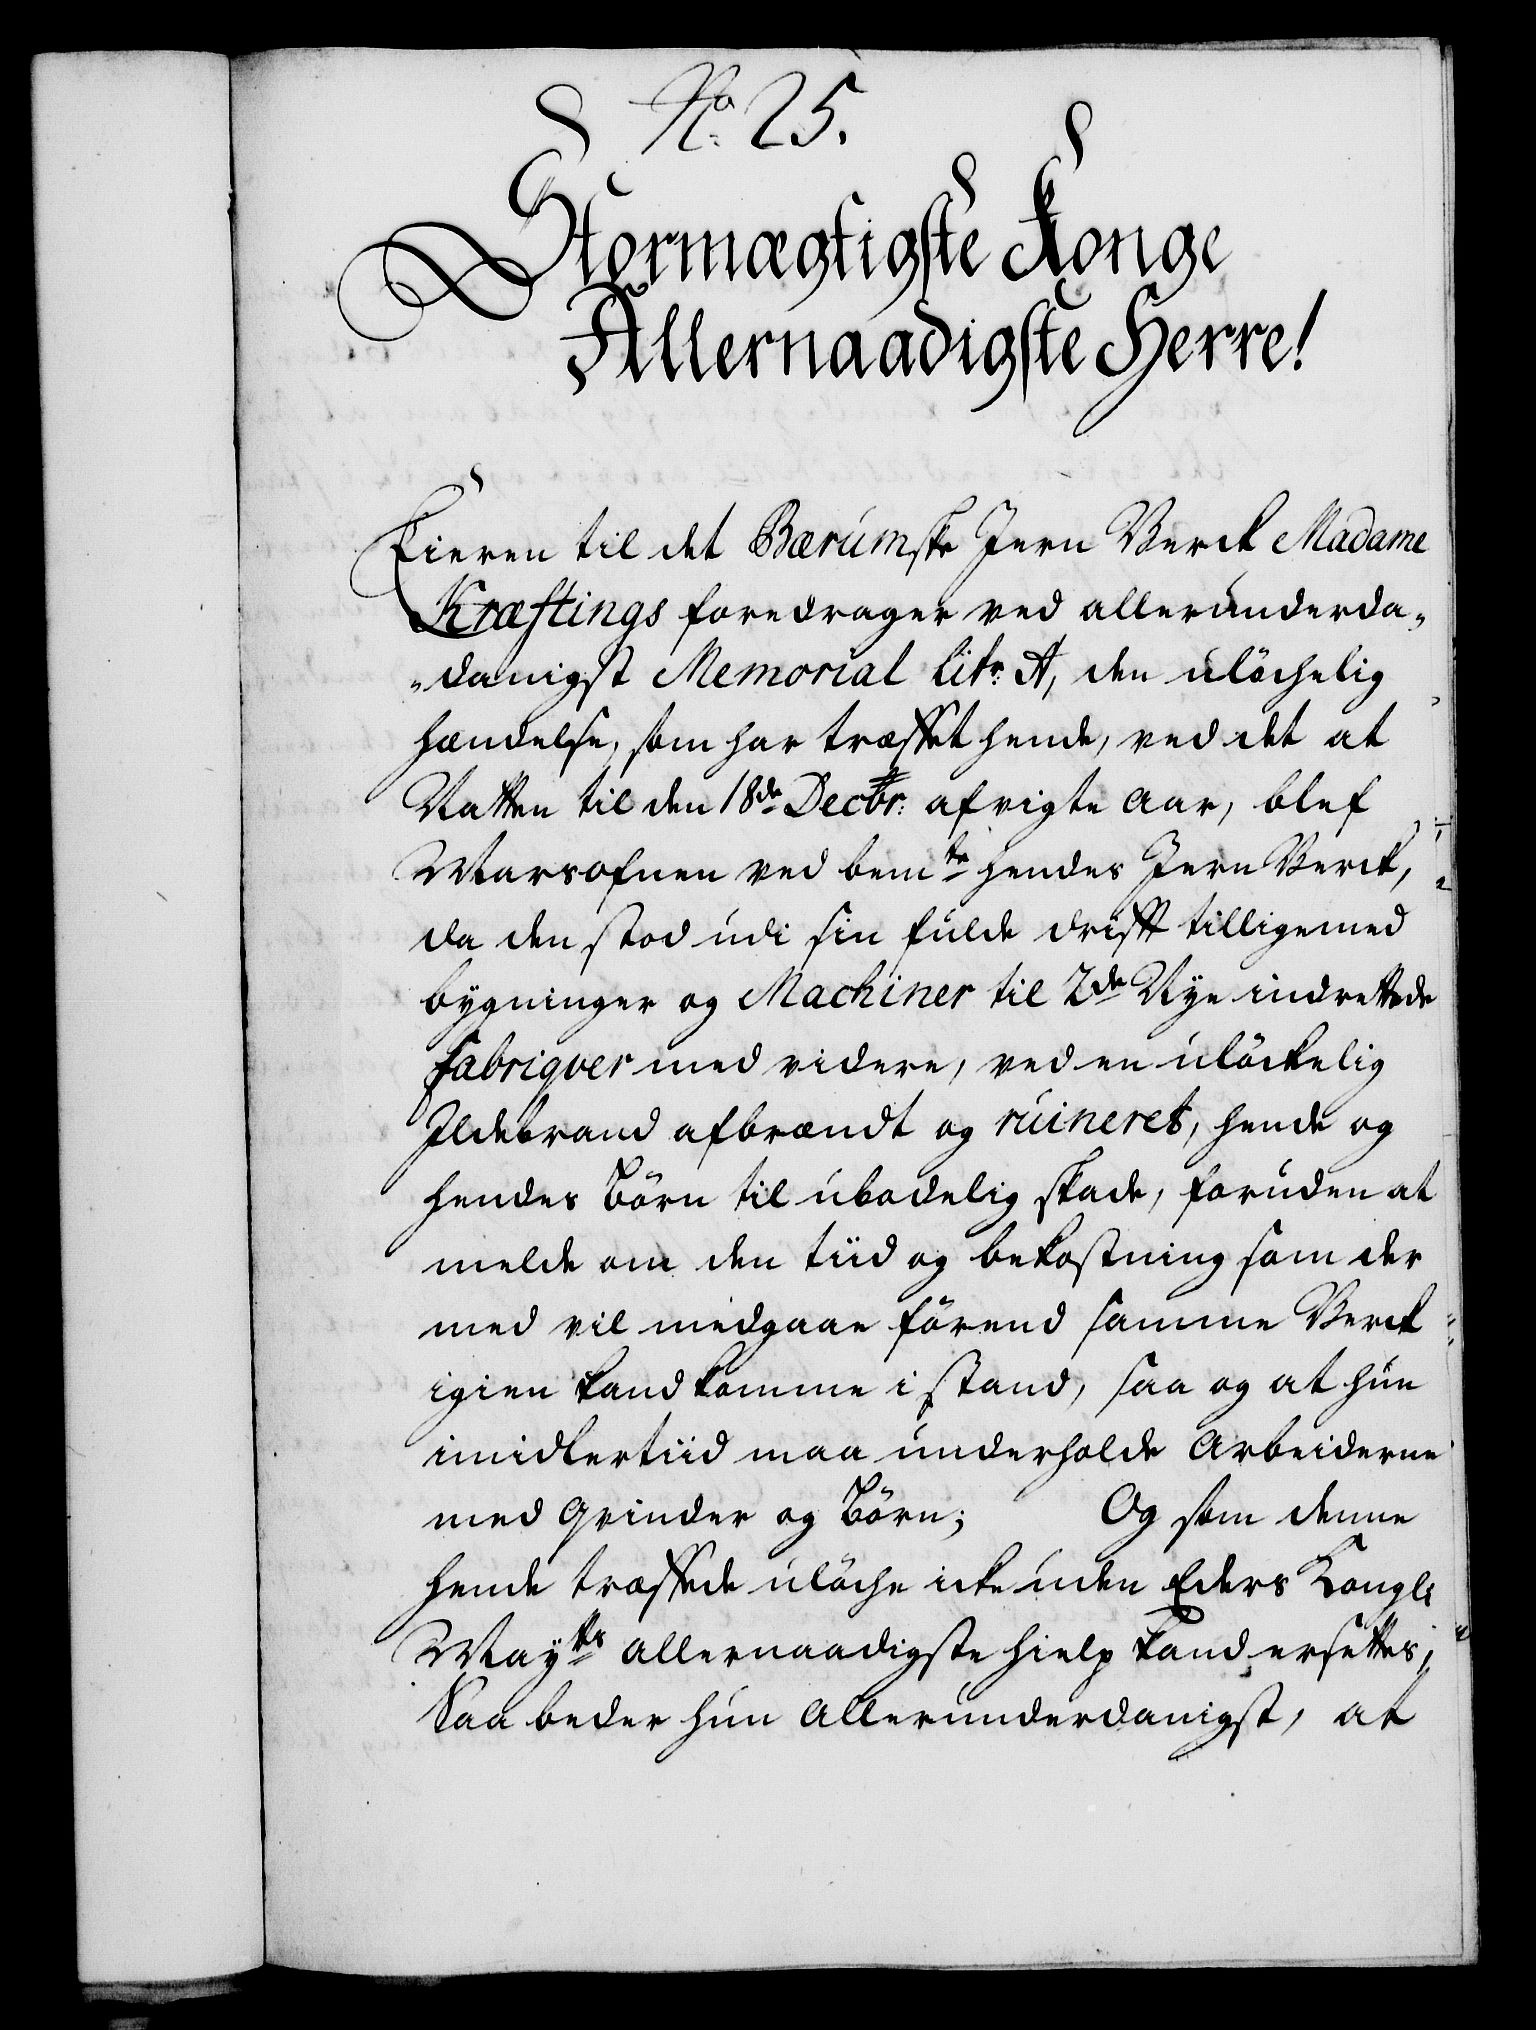 No 25.
Stormægtigste Konge
Allernaadigste Herre!
Eieren til det Bærumske Jern Verck Madame
Kræftings foredrager ved allerunderda„
„danigst Memorial Litr: A, den ulöchelig
hændelse, som har træffet hende, ved det at
Natten til den 18de Decbr: afvigte Aar, blef
Marsofnen ved bemte hendes Jern Verck,
da den stod udi sin fulde drifft tilligemed
bygninger og Machiner til 2de Nye indrettede
Fabriqver med videre, ved en ulöckelig
Ildebrand afbrændt og ruineret, hende og
hendes Börn til ubodelig skade, foruden at
melde om den tiid og bekostning som der
med vil medgaae förend samme Verck
igien kand komme i stand, saa og at hun
imidlertiid maa underholde Arbeiderne
med Qvinder og Börn; Og som denne
hende træffede ulöche icke uden Eders Kongl:
Maytts allernaadigste hielp kand ersettes,
Saa beder hun Allerunderdanigst, at